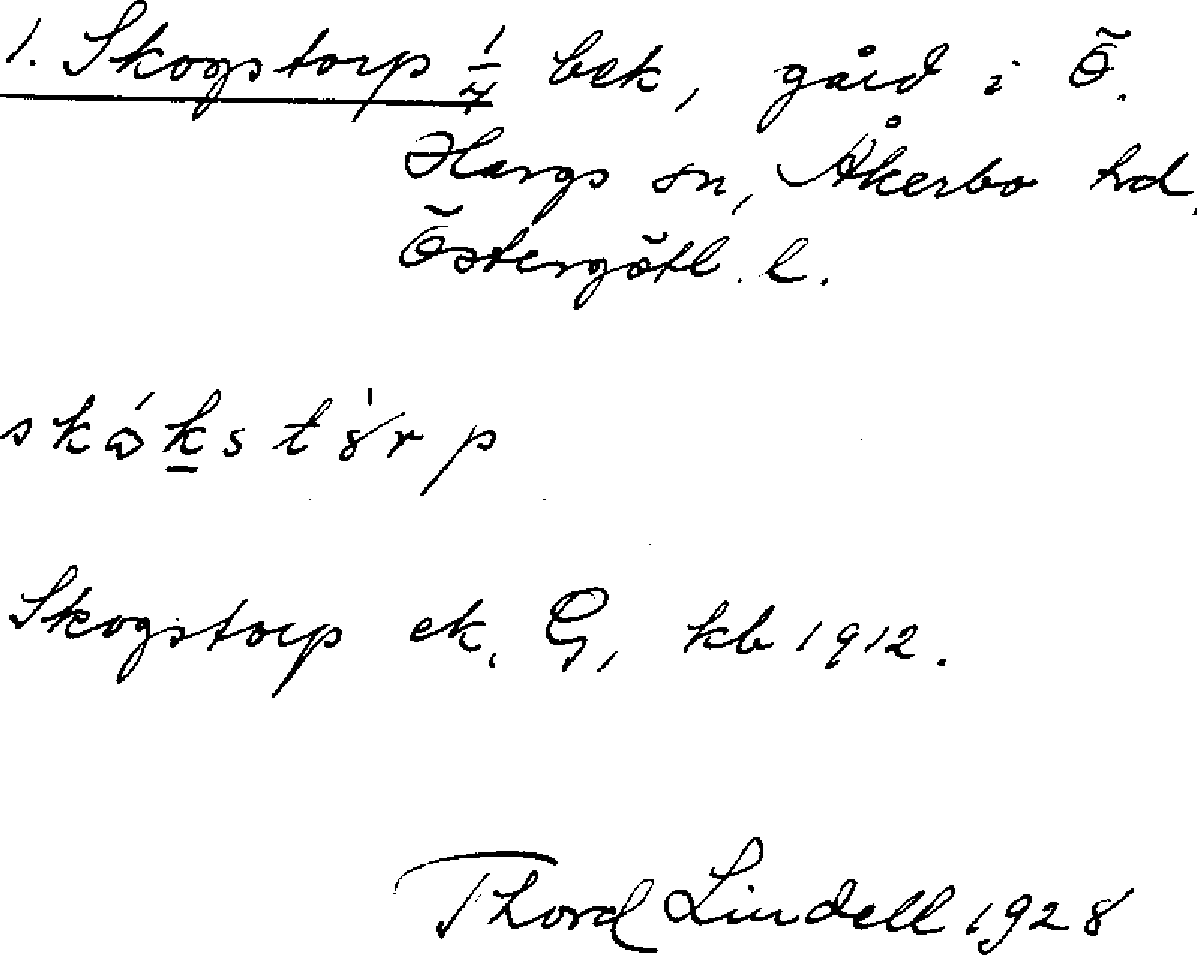 1. Skogstorp 1/4 bek, gård i Ö.
Hargs sn, Åkerbo hd.
Östergötl. l.
skákstòrp
Skogstorp ek. G, kb 1912.
Thord Lindell 1928